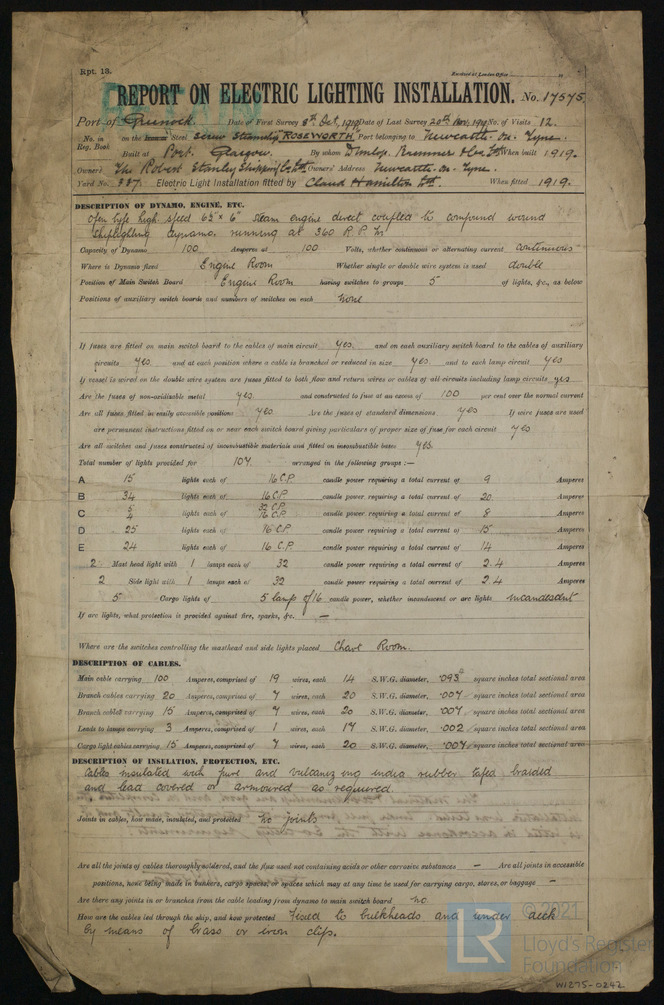 Rpt. 13.
Received at London Office
REPORT ON ELECTRIC LIGHTING INSTALLATION. No. 17575
Port of Greenock Date of First Survey 8th Oct. 1919 Date of Last Survey 20th Nov. 1919 No. of Visits 12.
No. in Reg. Book on the Iron or Steel Screw Steamship "ROSEWORTH" Port belonging to Newcastle-on-Tyne.
Built at Port Glasgow. By whom Dunlop, Bremner & Co. Ltd When built 1919.
Owners The Robert Stanley Shipping Co. Ltd. Owners' Address Newcastle-on-Tyne.
Yard No. 337. Electric Light Installation fitted by Claud Hamilton Ltd. When fitted 1919.
DESCRIPTION OF DYNAMO, ENGINE, ETC.
Open type high speed 6½" x 6" steam engine direct coupled to compound wound
shiplighting dynamo. running at 360 R.P.M.
Capacity of Dynamo 100 Amperes at 100 Volts, whether continuous or alternating current continuous
Where is Dynamo fixed Engine Room Whether single or double wire system is used double
Position of Main Switch Board Engine Room having switches to groups 5 of lights, &c., as below
Positions of auxiliary switch boards and numbers of switches on each none
If fuses are fitted on main switch board to the cables of main circuit yes. and on each auxiliary switch board to the cables of auxiliary
circuits yes and at each position where a cable is branched or reduced in size yes. and to each lamp circuit yes
If vessel is wired on the double wire system are fuses fitted to both flow and return wires or cables of all circuits including lamp circuits yes
Are the fuses of non-oxidizable metal yes and constructed to fuse at an excess of 100 per cent over the normal current
Are all fuses fitted in easily accessible positions yes Are the fuses of standard dimensions yes If wire fuses are used
are permanent instructions fitted on or near each switch board giving particulars of proper size of fuse for each circuit yes
Are all switches and fuses constructed of incombustible materials and fitted on incombustible bases yes.
Total number of lights provided for 107 arranged in the following groups :—
A 15 lights each of 16 C.P. candle power requiring a total current of 9 Amperes
B 34 lights each of 16 C.P. candle power requiring a total current of 20 Amperes
C 5 4 lights each of 32 C.P. 16 C.P. candle power requiring a total current of 8 Amperes
D 25 lights each of 16 C.P candle power requiring a total current of 15 Amperes
E 24 lights each of 16 C.P. candle power requiring a total current of 14 Amperes
2 Mast head light with 1 lamps each of 32 candle power requiring a total current of 2.4 Amperes
2 Side light with 1 lamps each of 32 candle power requiring a total current of 2.4 Amperes
5 Cargo lights of 5 lamp of 16 candle power, whether incandescent or arc lights incandescent
If arc lights, what protection is provided against fire, sparks, &c. —
Where are the switches controlling the masthead and side lights placed Chart Room.
DESCRIPTION OF CABLES.
Main cable carrying 100 Amperes, comprised of 19 wires, each 14 S.W.G. diameter, .093 square inches total sectional area
Branch cables carrying 20 Amperes, comprised of 7 wires, each 20 S.W.G. diameter, .007 square inches total sectional area
Branch cables carrying 15 Amperes, comprised of 7 wires, each 20 S.W.G. diameter, .007 square inches total sectional area
Leads to lamps carrying 3 Amperes, comprised of 1 wires, each 17 S.W.G. diameter, .002 square inches total sectional area
Cargo light cables carrying 15 Amperes, comprised of 7 wires, each 20 S.W.G. diameter, .007 square inches total sectional area
DESCRIPTION OF INSULATION, PROTECTION, ETC.
Cables insulated with pure and vulcanizing india rubber taped braided
and lead covered or armoured as required.
Joints in cables, how made, insulated, and protected no joints
Are all the joints of cables thoroughly soldered, and the flux used not containing acids or other corrosive substances — Are all joints in accessible
positions, none being made in bunkers, cargo spaces, or spaces which may at any time be used for carrying cargo, stores, or baggage —
Are there any joints in or branches from the cable leading from dynamo to main switch board no.
How are the cables led through the ship, and how protected Fixed to bulkheads and under deck
by means of brass or iron clips.
© 2021
LR
Lloyd's Register
Foundation
W1275-0242